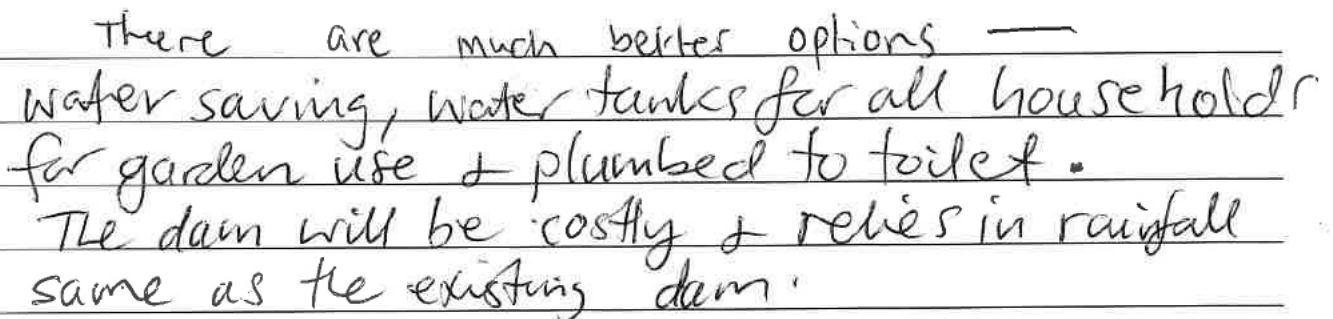 There are much better options —
water saving, water tanks for all households
for garden use & plumbed to toilet.
The dam will be costly & relies in rainfall
same as the existing dam.